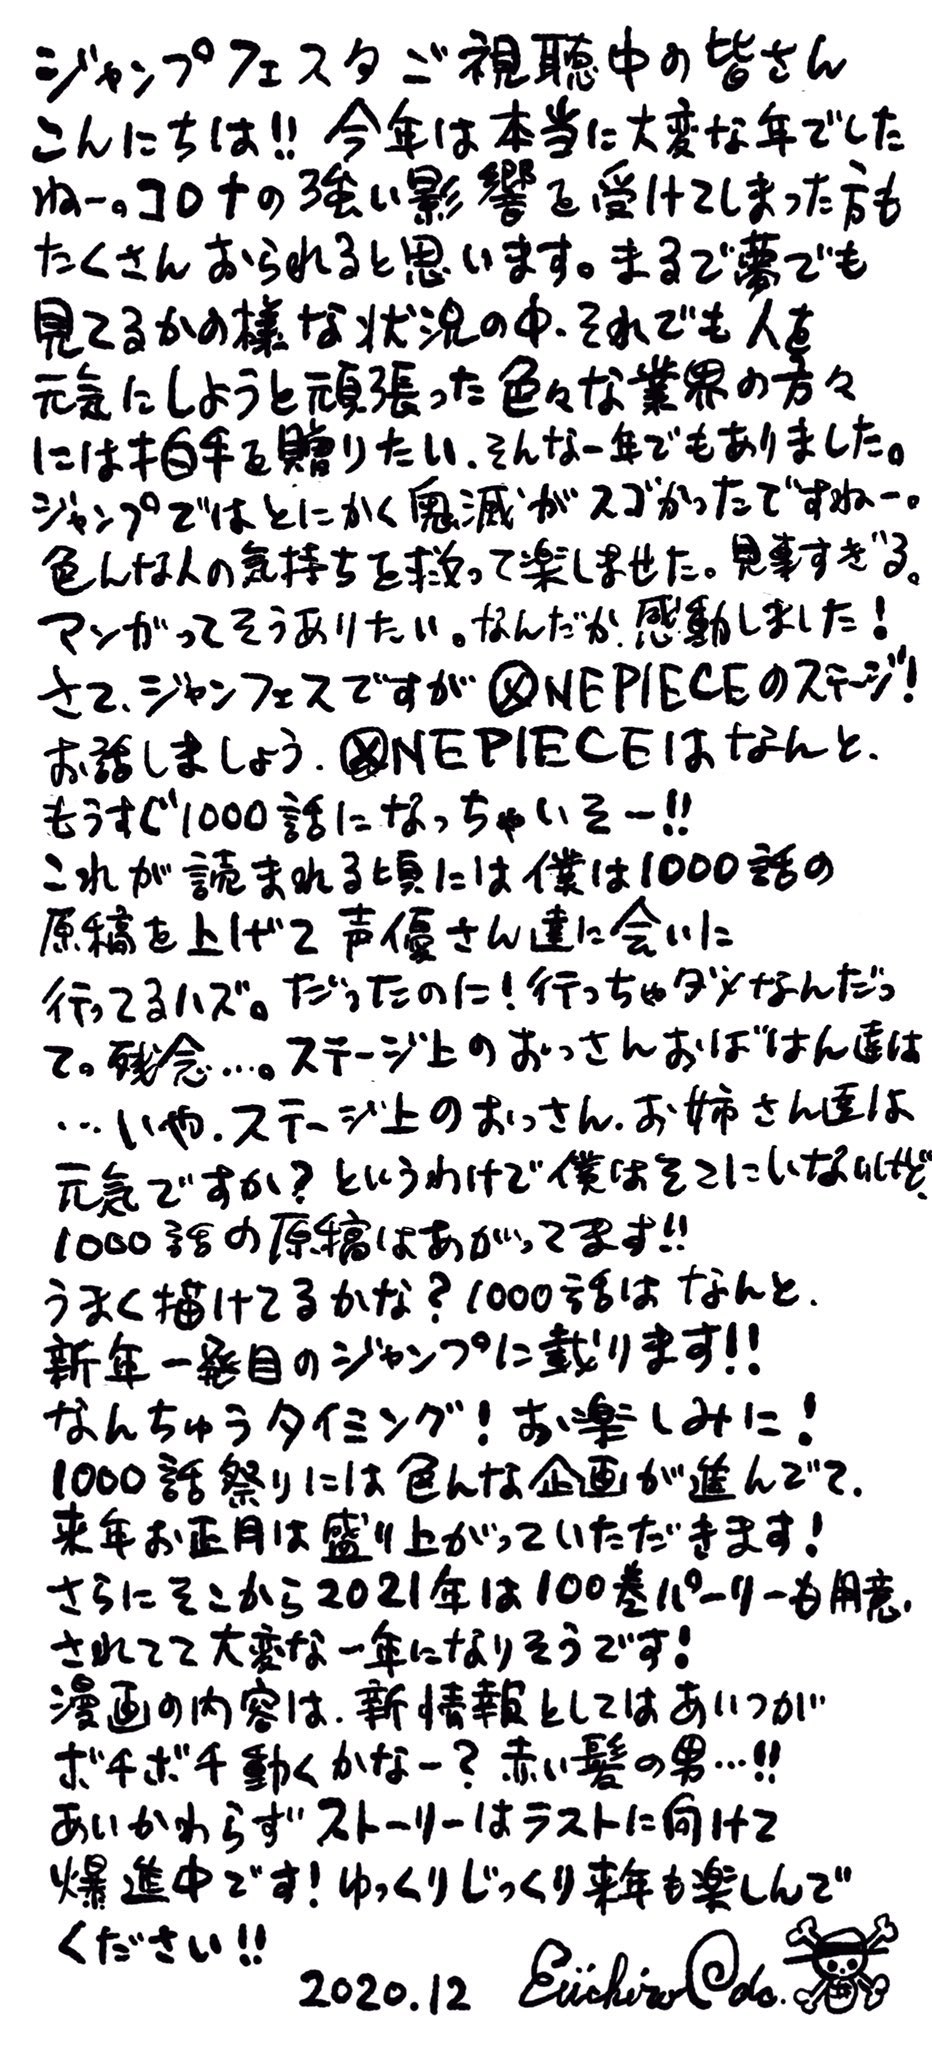 ジャンプフェスタご視聴中の皆さん
こんにちは!! 今年は本当に大変な年でした
ねー。コロナの強い影響を受けてしまった方も
たくさんおられると思います。まるで夢でも
見てるかの様な状況の中、それでも人を
元気にしようと頑張った色々な業界の方々
には拍手を贈りたい、そんな一年でもありました。
ジャンプではとにかく鬼滅がスゴかったですねー。
色んな人の気持ちを救って楽しませた。見事すぎる。
マンガってそうありたい。なんだか、感動しました!
さて、ジャンフェスですがONE PIECEのステージ!
お話しましょう。ONE PIECEはなんと、
もうすぐ1000話になっちゃいそー!!
これが読まれる頃には僕は1000話の
原稿を上げて声優さん達に会いに
行ってるハズ。だったのに!行っちゃダメなんだっ
て。残念…。ステージ上のおっさんおばはん達は
…いや、ステージ上のおっさん、お姉さん達は
元気ですか?というわけで僕はそこにいないけど、
1000話の原稿はあがってます!!
うまく描けてるかな?1000話はなんと、
新年一発目のジャンプに載ります!!
なんちゅうタイミング!お楽しみに!
1000話祭りには色んな企画が進んでて、
来年お正月は盛り上がっていただきます!
さらにそこから2021年は100巻パーリーも用意、
されてて大変な一年になりそうです!
漫画の内容は、新情報としてはあいつが
ボチボチ動くかなー?赤い髪の男…!!
あいかわらずストーリーはラストに向けて
爆進中です!ゆっくりじっくり来年も楽しんで
ください!!
2020.12 Eiichiro Oda.